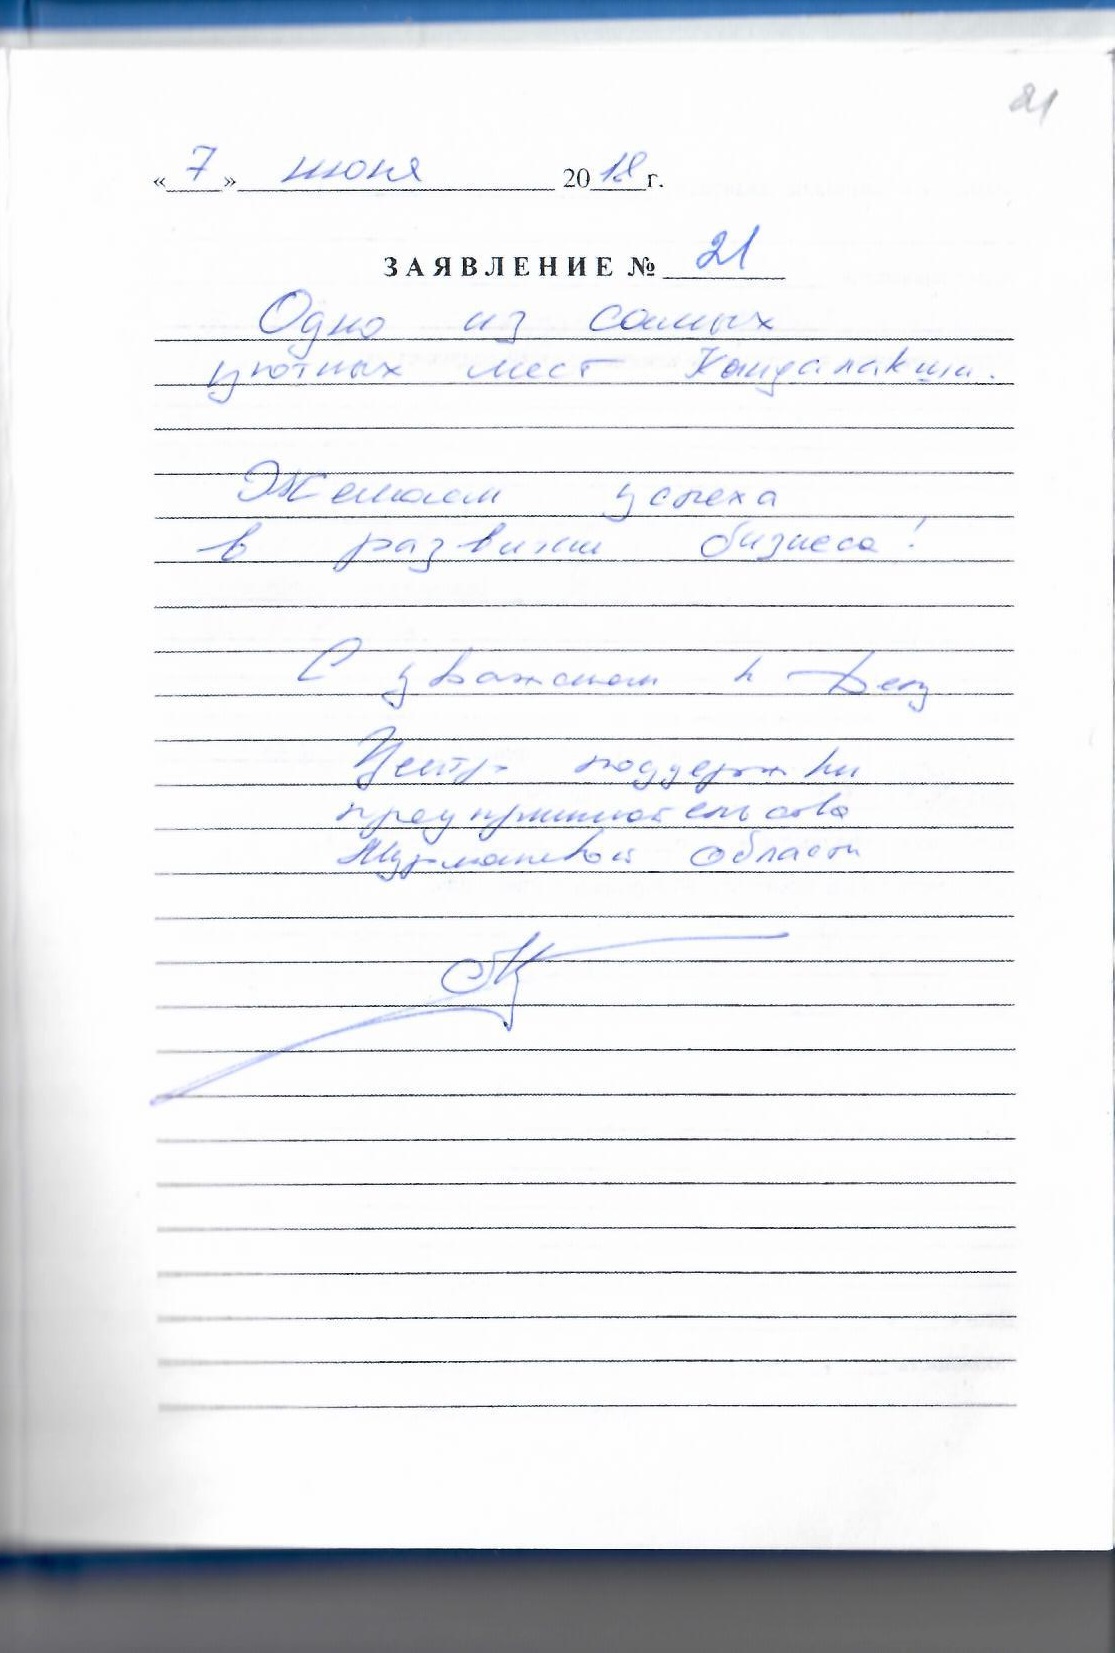 21
« 7 » июня 2018 г.
ЗАЯВЛЕНИЕ № 21
Одно из самых
уютных мест Кандалакши.
Желаем успеха
в развитии бизнеса!
С уважением к Делу
Центр поддержки
предпринимательства
Мурманской области